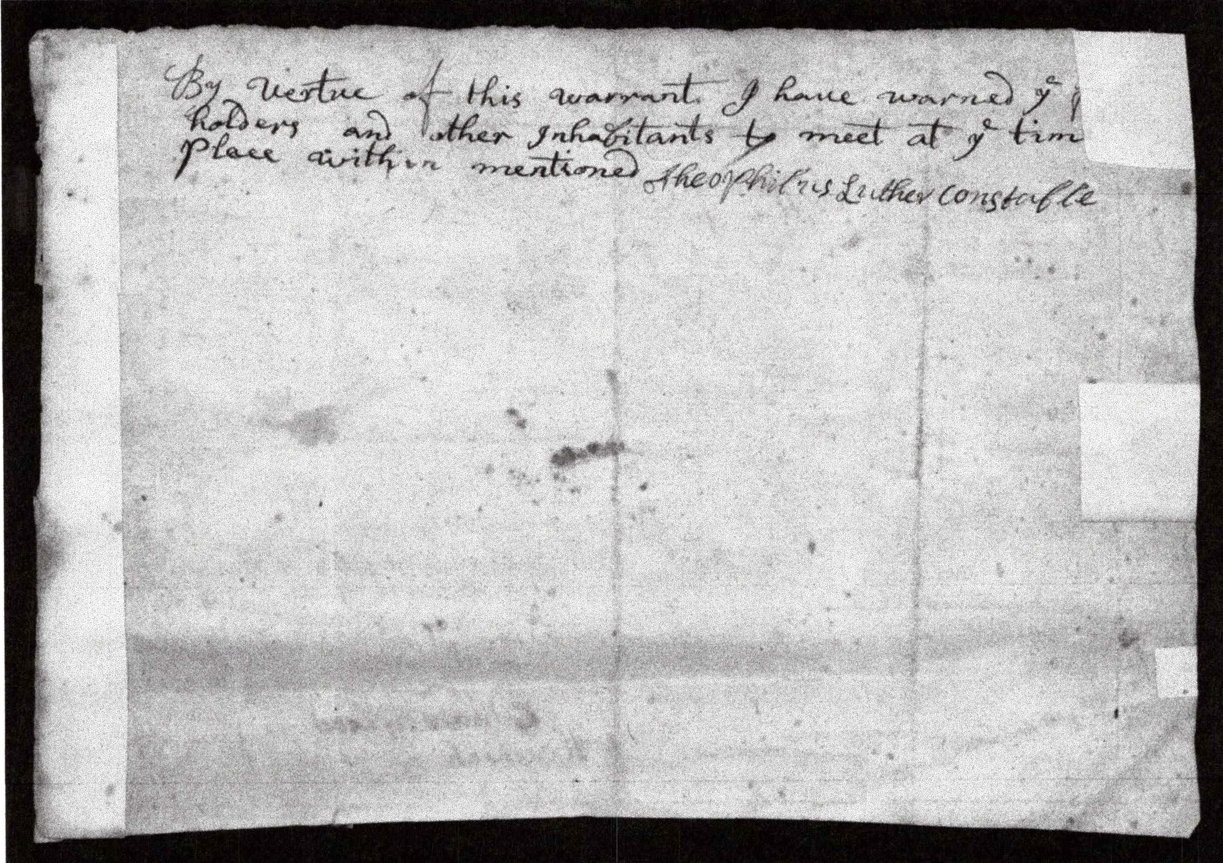 By Vertue of this warrant. I haue warned yᵉ
holders and other Inhabitants to meet at yᵉ tim
Place within mentioned Theophilus Luther Constable